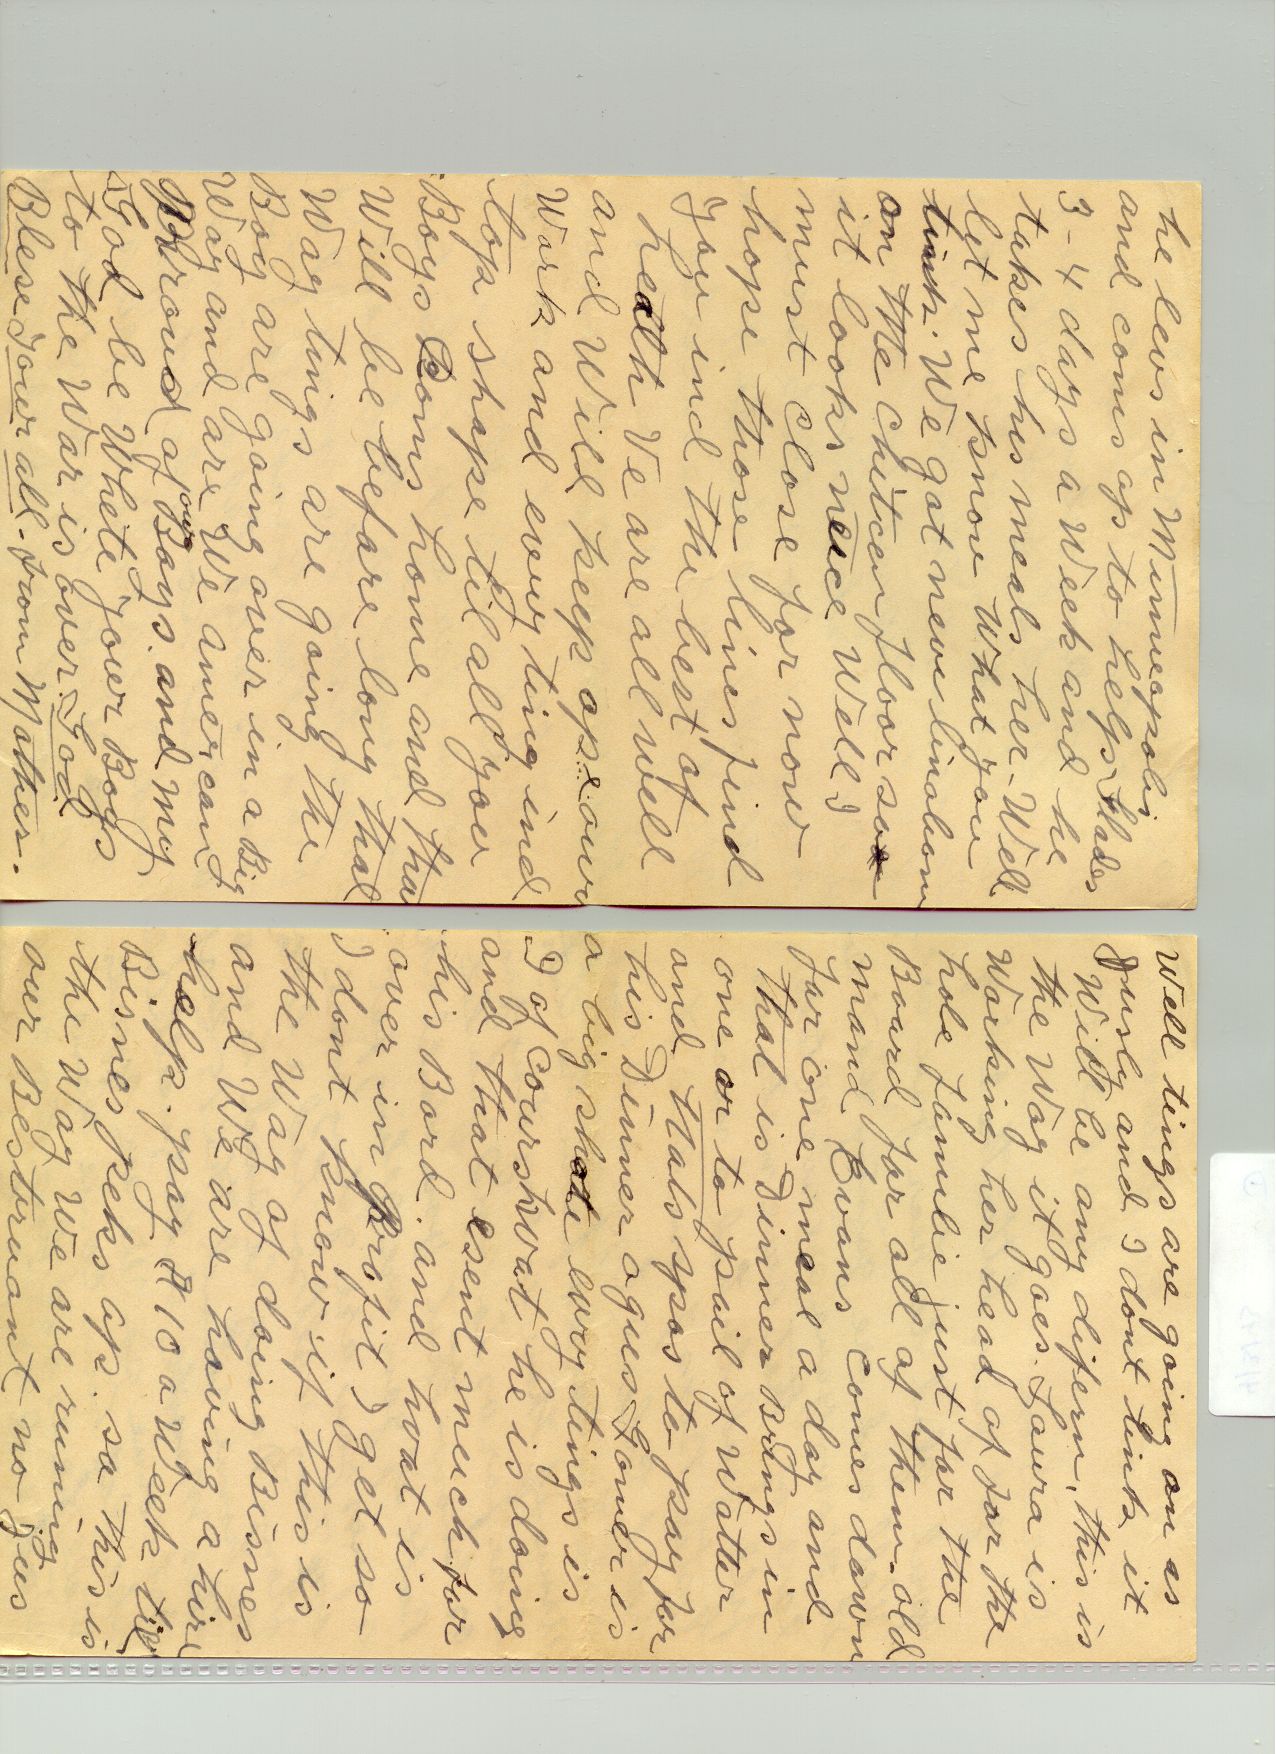 he levs in Minneapolis
and coms op to help Slades
3-4 days a Week and he
takes his meals her. Well
let me know What you
tink. We gat neuw linolium
on the chitcen floor so
it looks neice Well I
must close for now
hope those lines find
you ind the best of
health Ve are all well
and Will keep op our
Work and evry ting ind
top shape til all your
Boys Coms home and that
Will be befare long that
Way tings are going the
Boy are going over in a Big
Way and are We american
Phroud of our Boys. and may
God be Whete your Boys
to the War is over. God
Blese Your all. from Mother.
Well tings are going on as
Jusly and I dont tink it
Will be any difern, this is
the Way it goes. Laura is
Working her head of for the
hole famlie just for the
Board for all of them. old
mand Evans comes down
for one meal a day and
that is Dinner Brings in
one or to pail of Watter
and thats spos to pay for
his Dinner agues Homer is
a big shate evry tings is
I of Cours hvat he is doing
and that esent meuch for
his Bord. and hvat is
over in Profit I get so
I dont know if this is
the Way of doing Bisnes
and We are having a hire
help. pay $10 a Week til
Bisnes peks op. sa this is
the Way We are runing
our Besturant no Jus